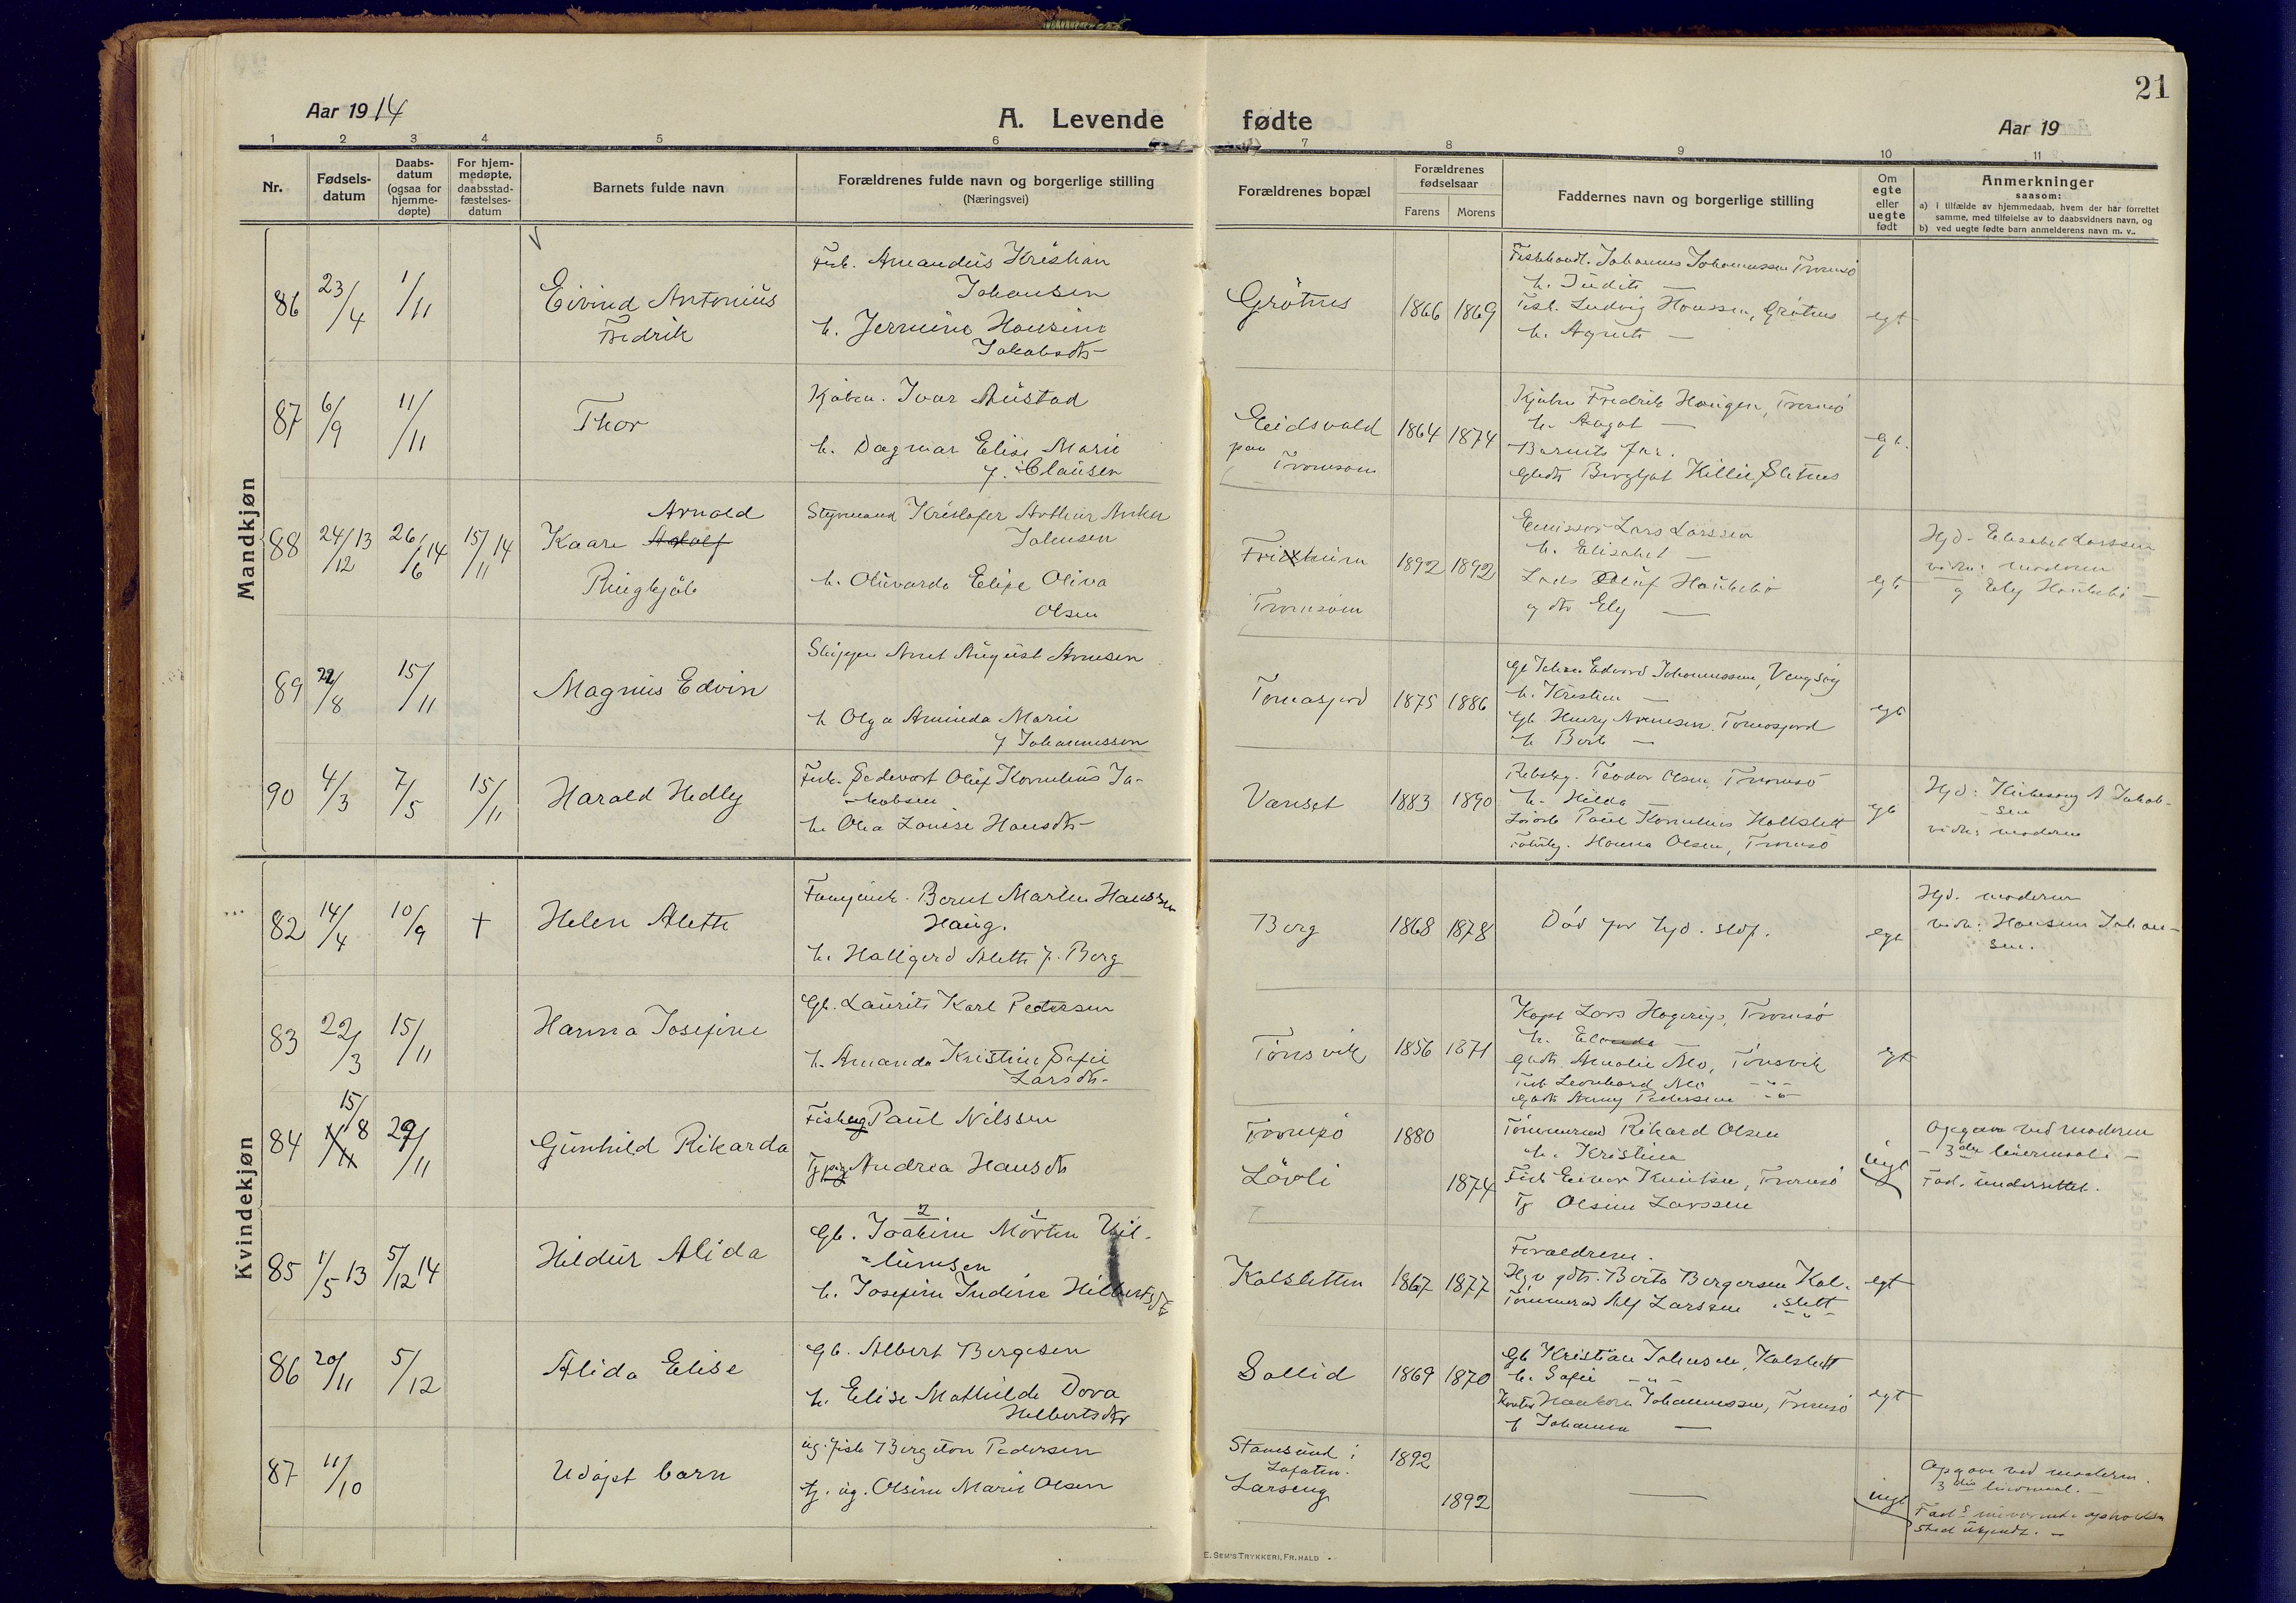 21
Aar 1914
A. Levende fødte
Aar 19
1 2 3 4 5 6 7 8 9 10 11
Nr.
Fødsels-
datum
Daabs-
datum
(ogsaa for
hjemme-
døpte)
For hjem-
medøpte,
daabsstad-
fæstelses-
datum
Barnets fulde navn
Forældrenes fulde navn og borgerlige stilling
(Næringsvei)
Forældrenes bopæl
Forældrenes
fødselsaar
Farens Morens
Faddernes navn og borgerlige stilling
Om
egte
eller
uegte
født
Anmerkninger
saasom:
a) i tilfælde av hjemmedaab, hvem der har forrettet
samme, med tilføielse av to daabsvidners navn, og
b) ved uegte fødte barn anmelderens navn m. v..
Mandkjøn
86 23/4 1/11
Eivind Antonius
Fredrik
Fisk. Amandus Kristian
Johansen
h. Jermine Hansine
Jakobsdtr
Grötnes
1866 1869
Fiskehandl. Johannes Johannessen Tromsö
h. Judit —
Fisk. Ludvig Hanssen, Grötnes
h. Agnete —
egt
87 6/9 11/11
Thor
Kjøbm. Ivar Austad
h. Dagmar Elise Marie
f. Clausen
Eidsvold
paa
Tromsøen
1864 1874
Kjøbm Fredrik Haugen, Tromsö
h. Aagot —
Barnets far.
Gbdtr Bergljot Killie, Sletnes
egt.
88 24/12 13 26/6 14 15/11 14
Arnold
Kaare Adolf
Ringkjöb
Styrmand Kristofer Arthur Anker
Johnsen
h. Olivarda Elise Oliva
Olsen
Fridheim
Tromsøen
1892 1892
Emissær Lars Larssen
h. Elisabet —
Lods Oluf Haukebö
og dtr Ely —
egt
Hjd. Elisabet Larssen
vidn: moderen
og Ely Haukebö —
89 22/8 15/11
Magnus Edvin
Skipper Arnt August Arnesen
h Olga Aminda Marie
f Johannessen
Tomasjord
1875 1886
Gb Johan Edvard Johannessen, Vengsöy
h. Kristine —
Gb Henry Arnesen. Tomasjord
h Berte —
egt
90 4/3 7/5 15/11
Harald Hedly
Fisk. Sedevart Oluf Kornelius Ja-
kobsen
h. Olea Louise Hansdtr
Vanset
1883 1890
Rebslg. Teodor Olsen, Tromsö
h. Hilda —
Paul Kornelius Holtslett
Hanna Olsen, Tromsö
egt
Hjd: Kirkesang A Jakob-
sen
vidn: moderen
Kvindekjøn
82 14/4 10/9 †
Helen Alette
Bernt Martin Hanssen
Haug.
h. Hallgerd Alette f. Berg
Berg
1868 1878
Död før hjd. stdf.
egt
Hjd. moderen
vidn: Hansine Johan-
sen.
83 22/3 15/11
Hanna Josefine
Gb. Laurits Karl Pedersen
h. Amanda Kristine Sofie
Larsdtr
Tönsvik
1856 1871
Kapt Lars Hagerup, Tromsö
h. —
Gbdtr Amalie Mo, Tönsvik
Fisk Leonhard Mo — " —
Gbdtr Jenny Pedersen — " —
egt
84 15/8 1/11 29/11
Gunhild Rikarda
Fisk ug Paul Nilssen
Tj pig Andrea Hansdtr
Tromsö
Lövli
1880
1874
Tömmermd Rikard Olsen
h. Kristina
Fisk Einar Knutsen, Tromsö
Tj Olsine Larssen
uegt
Opgave ved moderen
— 3die leiermaal. —
Fad. underrettet.
85 1/5 13 5/12 14
Hildur Alida
2 1
Gb. Joakim Morten Vil-
lumsen
h. Josefine Indine Hilbertsdtr
Kolsletten
1867 1877
Forældrene.
Hjv gdtr. Berta Bergersen Kol-
slett
Tömmermd Alf Larssen — " —
egt
86 20/11 5/12
Alida Elise
Gb. Albert Bergesen
h. Elise Mathilde Dora
Helbertsdtr
Sollid
1869 1870
Gb Kristian Johnsen, Kolslett
h. Sofie — " —
Haakon Johannessen, Tromsö
h Johanna —
egt
87 11/10
Udöpt barn
ug. fisk Bergeton Pedersen
tj. ug. Olsine Marie Olsen
Stamsund i
Lofoten.
Larseng
1892
1892
—
uegt
Opgave ved moderen.
3die leiermaal. —
Fad s nuværende opholds
sted ukjendt. —
E. SEM'S TRYKKERI, FR. HALD